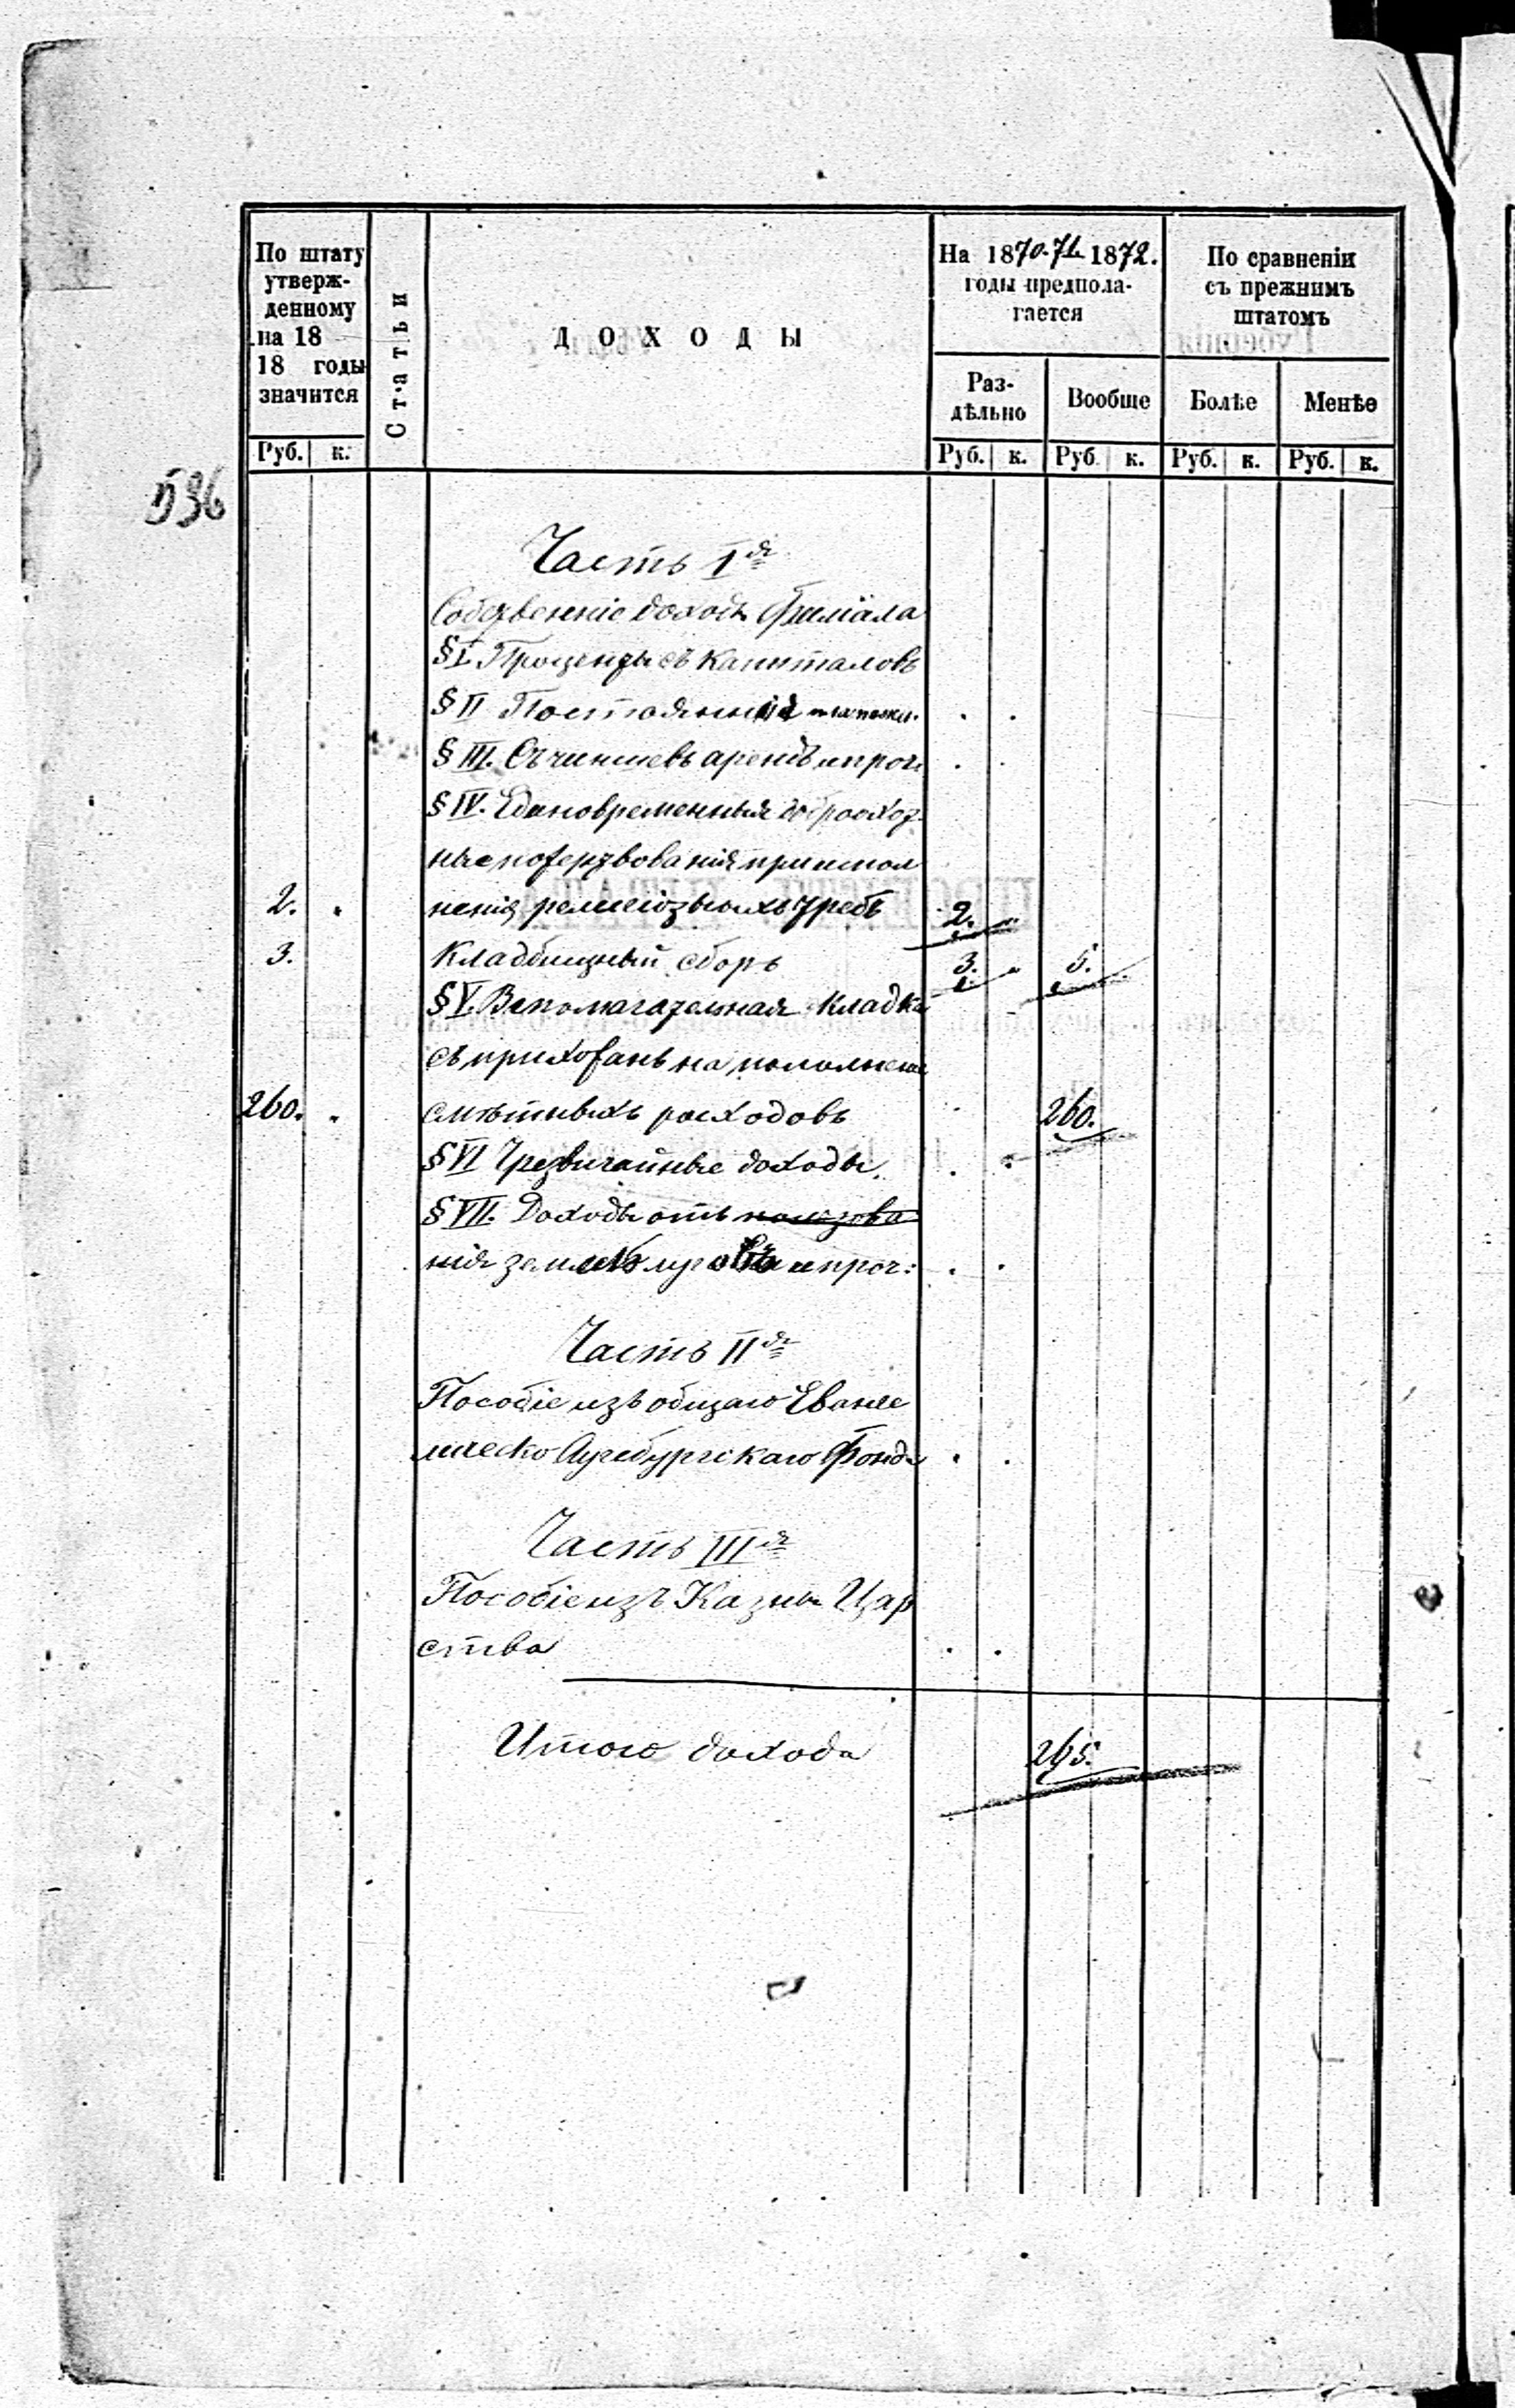 По штату утверж-
денному
на 18
18 годы
значится
Статьи
ДОХОДЫ
На 1870. 71. 1872.
годы предпола-
гается
По сравненіи
съ прежнимъ
штатомъ
Раз-
дѣльно
Вообще
Болѣе
Менѣе
Руб. к. Руб. к. Руб. к. Руб. к. Руб. к.
536
Часть I я
Собственніе доходы Филіала
§ I. Проценты съ капиталовъ
§ II Постоянныя
§ III. Съ чиншевъ арендъ и проч.
§ IV. Единовременныя доброхот
ные пожертвованія при испол
2. нения религіозныхъ требъ 2.
3. Кладбищный сборъ 3. 5.
§ V. Вспомагательная кладка
съ прихожанъ на пополненіе
260. смѣтныхъ расходовъ 260.
§ VI Чрезвичайные доходы.
§ VII. Доходы отъ пользова
нія земель луговъ и проч:
Часть II я
Пособіе изъ общаго Еванге
лическо Аугсбургскаго Фонда
Часть III я
Пособіе изъ Казны Цар
ства
Итого дохода 265.